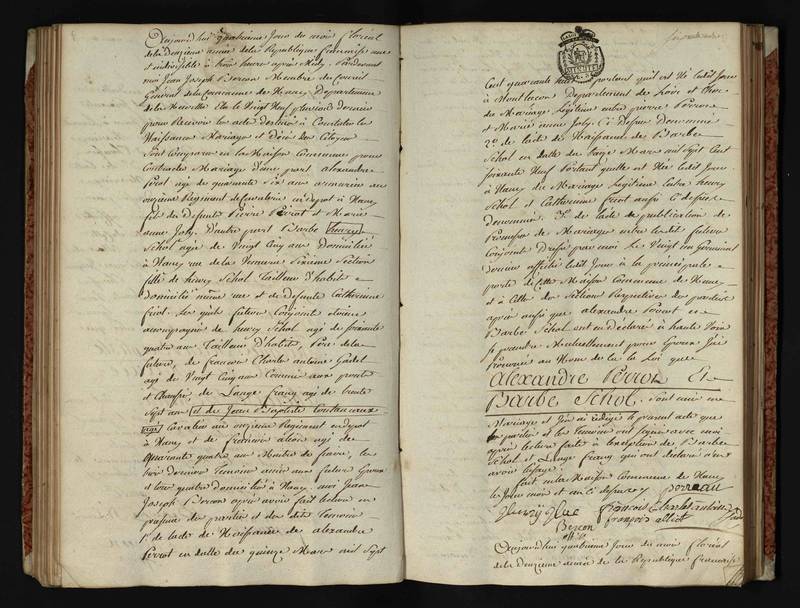 Aujourd'hui quatrieme Jour du mois floreal
de la Deuxieme année de la Republique francaise une
et indivisible à trois heures après Midy. Pardevant
moi Jean Joseph Bercon Membre du Conseil
General de la Commune de Nancy Departement
de la Meurthe Elu le Vingt Neuf pluviose dernier
pour Recevoir les actes destinés à Constater les
Naissances Mariages et Décès des Citoyens
Sont Comparus en la Maison Commune pour
Contracter Mariage d'une part alexandre
Perrot agé de quarante Six ans armurier au
onzieme Regiment de Cavalerie en dépot à Nancy
fils de defunts Pierre Perrot et Marie
anne Joly. D'autre part Barbe henry
Schol agée de Vingt Cinq ans Domiciliée
à Nancy rue de la Sixieme Section
fille de henry Schol Tailleur d'habit
Domicilié même rue et de defunte Catherinne
friot. Les quels futurs Conjoints etoient
accompagnés de henry Schol agé de soixante
quatre ans Tailleur d'habits, Pere de la
future, de francois Charle antoine
agé de Vingt Cinq ans Commis aux
et Chauffe, de Lange franç agé de trente
Sept ans et de Jean Baptiste
Cavalier au onzieme Regiment en dépot
à Nancy et de francois aliot agé de
quarante quatre ans Maitre de
dernier Temoins amis aux futurs Epoux
et tous quatre domiciliés à Nancy. moi Jean
Joseph Bercon après avoir fait lecture en
presence des parties et des dits Temoins
1° de l'acte de Naissance de alexandre
Perrot en datte du quinze Mars mil Sept
Cent quarante huit portant qu'il est Né ledit Jour
à Departement de Loire et Cher
du Mariage Légitime entre pierre Perrot
et Marie anne Joly. Ci dessus Denommés
2° de l'acte de Naissance de Barbe
Schol en datte du Mars mil Sept Cent
soixante Neuf Portant quelle est Née ledit Jour
à Nancy du Mariage Légitime entre henry
Schol et Catherinne friot aussi Ci dessus
denommés. 3° de l'acte de publication de
Promesse de Mariage entre lesdits futurs
Conjoints Dressé par moi Le Vingt un Germinal
dernier affiché ledit Jour à la principale
porte de cette Maison Commune de Nancy
et à Celles des Sections Respectives des parties
après aussi que alexandre Perrot et
Barbe Schol ont eu déclaré à haute Voix
se prendre Mutuellement pour Epoux J'ai
Prononcé au Nom de la Loi que
Alexandre Perrot Et
Barbe Schol. Sont unis en
Mariage et J'en ai rédigé le présent acte que
les parties et les temoins ont signé avec moi
après lecture faite à l'exception de Barbe
Schol et Lange franç qui ont déclaré n'en
avoir l'usage.
fait en la Maison Commune de Nancy
les Jour mois et an Ci dessus perreau
francois Charle antoine
Bercon francois alliot
off. p.
Aujourd'hui quatrieme Jour du mois floreal
de la Deuxieme année de la Republique francaise